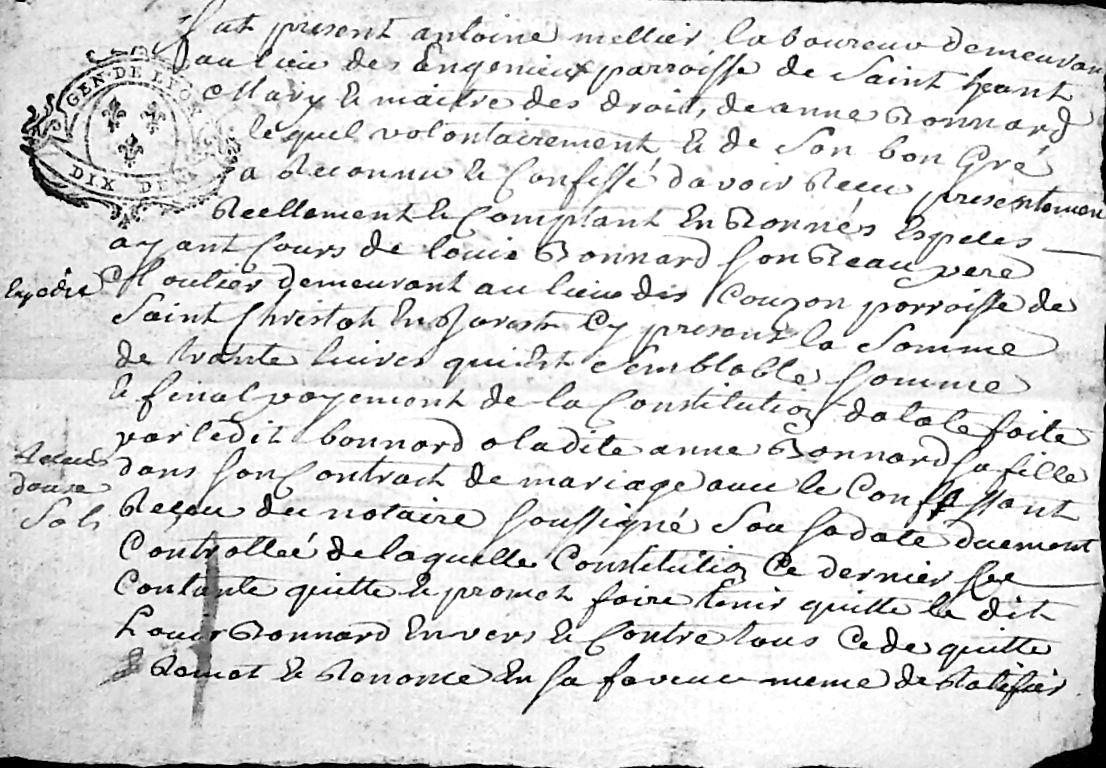 GEN. DE LYON
DIX DEN
fut present antoine mellier laboureur demeurant
au lieu des Engenieux parroisse de Saint heant
Mary & maitre des droits de anne Bonnard
lequel volontairement & de Son bon Gré
a Reconnu & Confessé davoir Recu presentemen
Reellement & Comptant En Bonnes Especes
ayant Cours de louis Bonnard son Beau pere
Expedié
Moulier demeurant au lieu dit Couzon parroisse de
Saint Christoh En Jarest Cy present la Somme
de trante livres qui Est Semblable Somme
& final payement de la Constitution dalate faite
par ledit bonnard a ladite anne Bonnard sa fille
Receu
douze
Sols
dans son Contract de mariage avec le Confessant
Receu du notaire soussigné Sou sa date duement
Controlleé de laquelle Constitution Ce dernier se
Contante quitte & promet faire tenir quitte le dit
Louis Bonnard Envers & Contre tous Cede quitte
Remet & Renonce En sa faveur meme de Ratifier